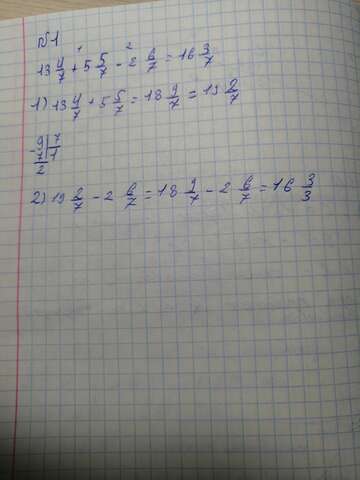 №1
1 2
13 4/7 + 5 5/7 - 2 6/7 = 16 3/7
1) 13 4/7 + 5 5/7 = 18 9/7 = 19 2/7
- 9 | 7
7 | 1
2
2) 19 2/7 - 2 6/7 = 18 9/7 - 2 6/7 = 16 3/3